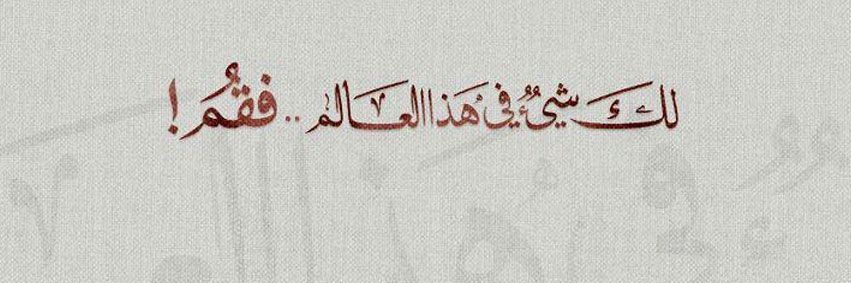 لكَ شيءٌ في هَذا العَالم .. فقُمَ !